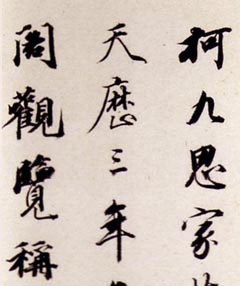 柯九思家
天歷三年
閣觀覽稱